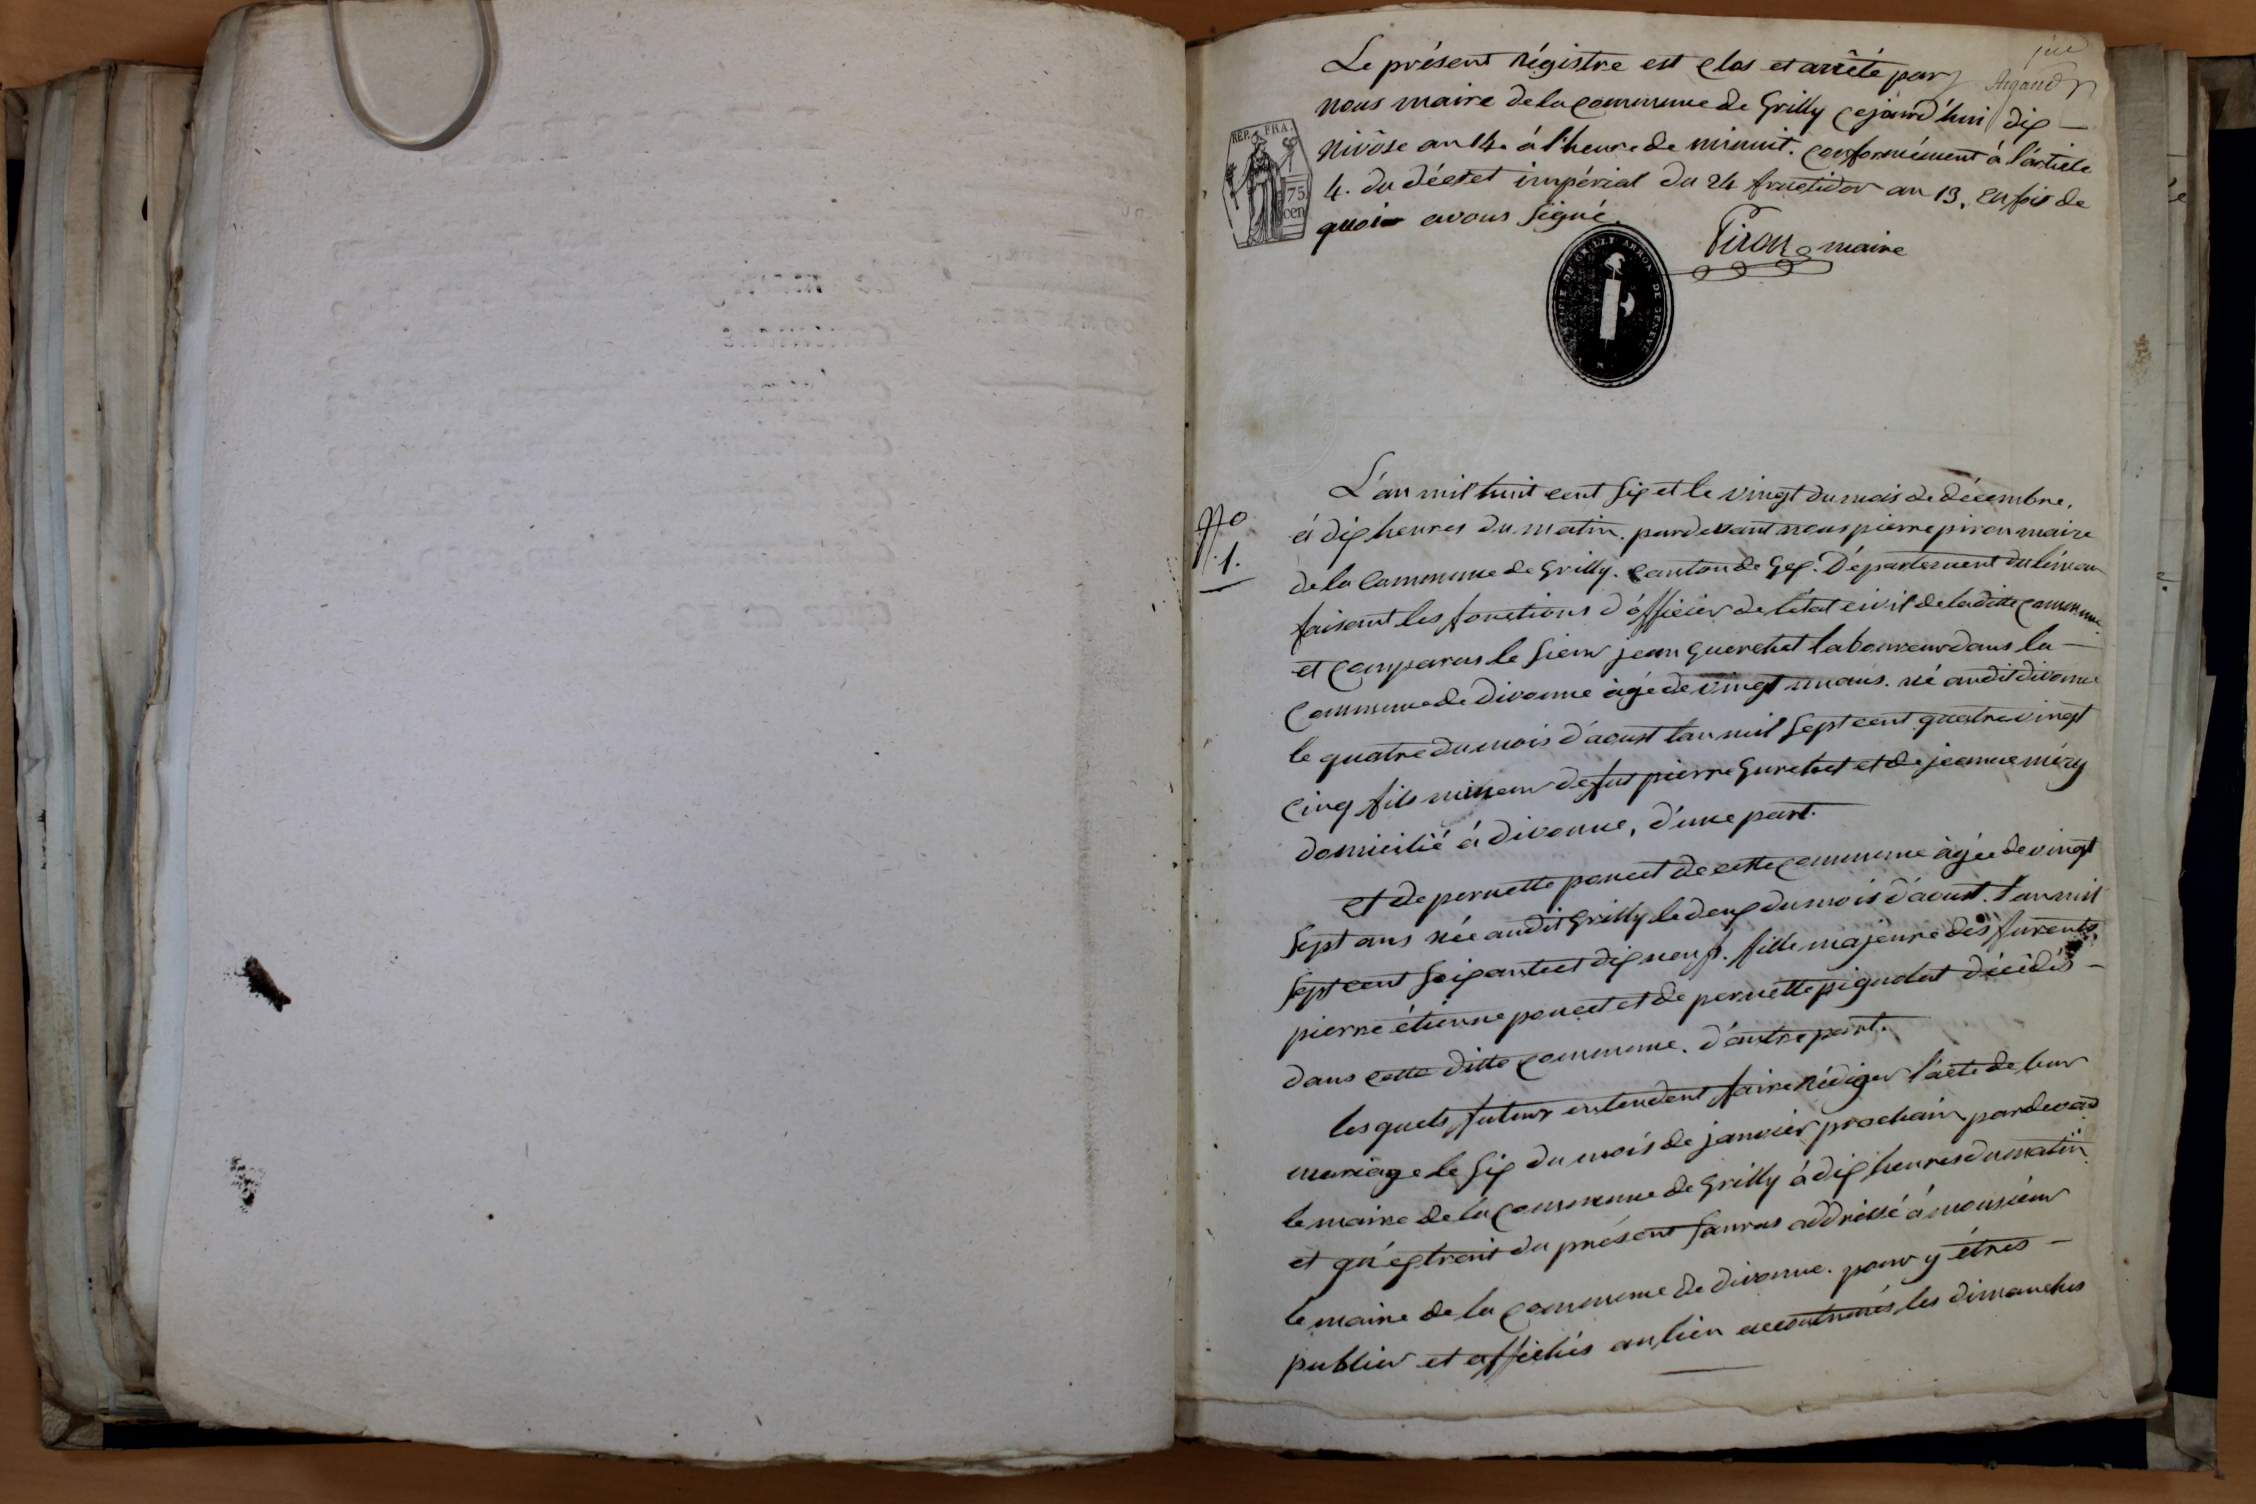 Le présent régistre est clos et arrêté par
Argaud
nous maire de la commune de Grilly cejourd'hui dix —
nivôse an 14. à l'heure de minuit. conformément à l'article
4. du décret impérial du 24 fructidor an 13. en foi de
quoi avons signé.
REP. FRA.
75
cen
Piron maire
MAIRIE DE GRILLY ARRON. DE GENEVE
L'an mil huit cent six et le vingt du mois de décembre.
à dix heures du matin. pardevant nous pierre piron maire
No
1.
de la commune de Grilly. canton de Gex. Département du léman
faisant les fonctions d'officier de l'état civil de la ditte commune
et comparus le sieur jean Guerchet laboureur dans la —
commune de divonne âgé de vingt un ans. né audit divonne
le quatre du mois d'aoust l'an mil sept cent quatre vingt
cinq fils mineur de fut pierre Gurchet et de jeanne méry
domicilié à divonne, d'une part.
et de pernette poncet de cette commune âgée de vingt
sept ans née audit Grilly le deux du mois d'aoust. l'an mil
sept cent soixante et dix neuf. fille majeure des furents
pierre étienne poncet et de pernette pignolat décidés —
dans cette ditte commune. d'autre part.
lesquels futur entendent faire rédiger l'acte de leur
mariage le six du mois de janvier prochain pardevad
le maire de la commune de Grilly à dix heures du matin
et qu'extrait du présent sauras addréssé à monsieur
le maire de la commune de divonne. pour y êtres —
publier et affichés au lieu accoutumés les dimanches